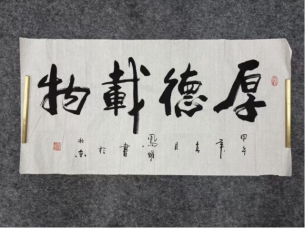 厚德載物
甲午年春月
書於北京